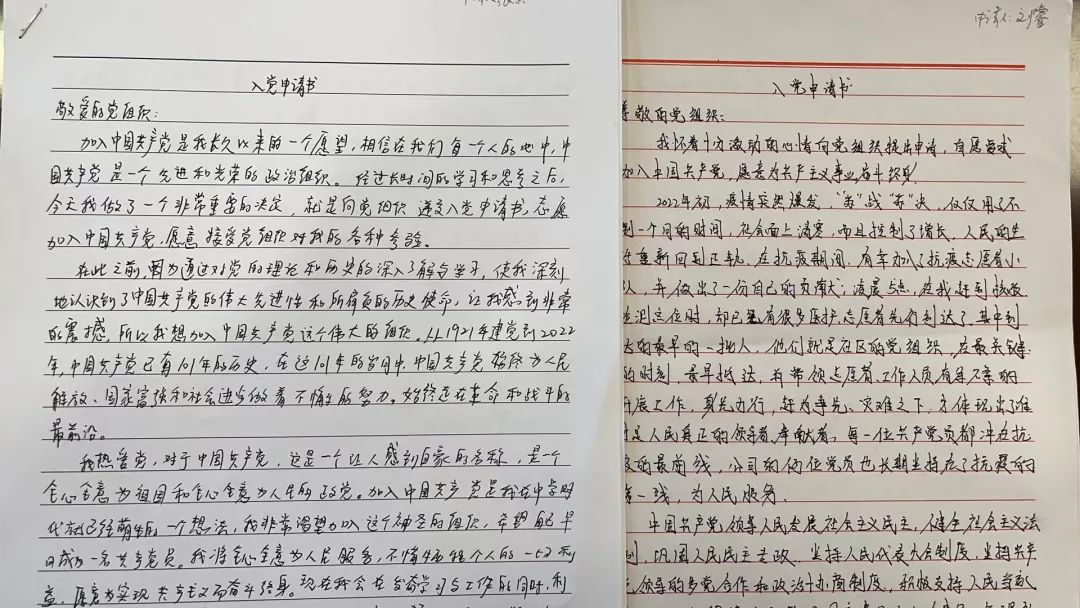 入党申请书
敬爱的党组织:
加入中国共产党是我长久以来的一个愿望,相信在我们每一个人的心中,中
国共产党是一个先进和光荣的政治组织。经过长时间的学习和思考之后,
今天我做了一个非常重要的决定,就是向党组织递交入党申请书,志愿
加入中国共产党,愿意接受党组织对我的各种考验。
在此之前,因为通过对党的理论和历史的深入了解与学习,使我深刻
地认识到了中国共产党的伟大先进性和所肩负的历史使命,让我感到非常
的震撼,所以我想加入中国共产党这个伟大的组织。从1921年建党到2022
年,中国共产党已有101年的历史,在这101年的岁月中,中国共产党始终为人民
解放、国家富强和社会进步做着不懈的努力。始终走在革命和战斗的
最前沿。
我热爱党,对于中国共产党,这是一个让人感到自豪的名称,是一个
全心全意为祖国和全心全意为人民的政党。加入中国共产党是我在中学时
代就已经萌生的一个想法,我非常渴望加入这个神圣的组织,希望自己早
日成为一名共产党员。我将全心全意为人民服务,不惜牺牲个人的一切利
益,愿意为实现共产主义而奋斗终身。现在我会在发奋学习与工作的同时,利
申请人:文睿
入党申请书
尊敬的党组织:
我怀着十分激动的心情向党组织提出申请,自愿要求
加入中国共产党,愿意为共产主义事业奋斗终身
2022年初,疫情突然爆发,"苏"战"苏"决,仅仅用了不
到一个月的时间,社会面上清零,而且控制了增长,人民的生
活重新回到正轨。在抗疫期间,有幸加入了抗疫志愿者小
队,并做出了一份自己的贡献;凌晨5点,在我赶到核酸
检测点位时,却已经有很多医护、志愿者先行到达了,其中到
达的最早的一批人,他们就是社区的党组织,在最关键
的时刻,最早抵达,并带领志愿者、工作人员有条不紊的
开展工作,身先力行,敢为争先。灾难之下,方体现出了谁
才是人民真正的领导者、奉献者,每一位共产党员都冲在抗
疫的最前线,公司的两位党员也长期坚持在了抗疫的
第一线,为人民服务。
中国共产党领导人民发展社会主义民主,健全社会主义法
制,巩固人民民主专政。坚持人民代表大会制度,坚持共产
党领导的多党合作和政治协商制度,积极支持人民当家